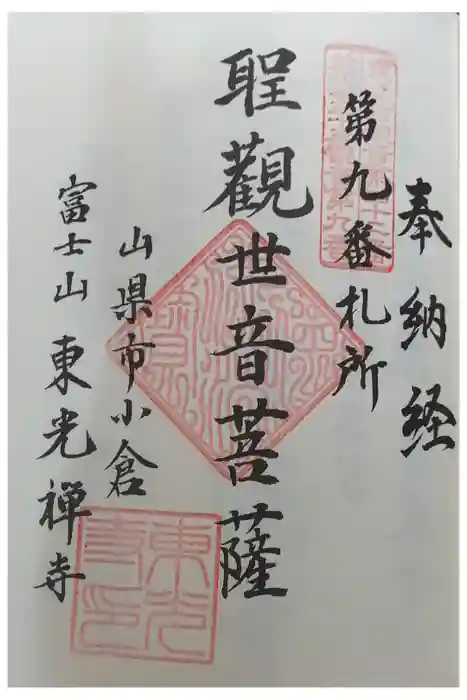 奉納経
第九番札所
聖観世音菩薩
山県市小倉
富士山東光禅寺
東光寺印